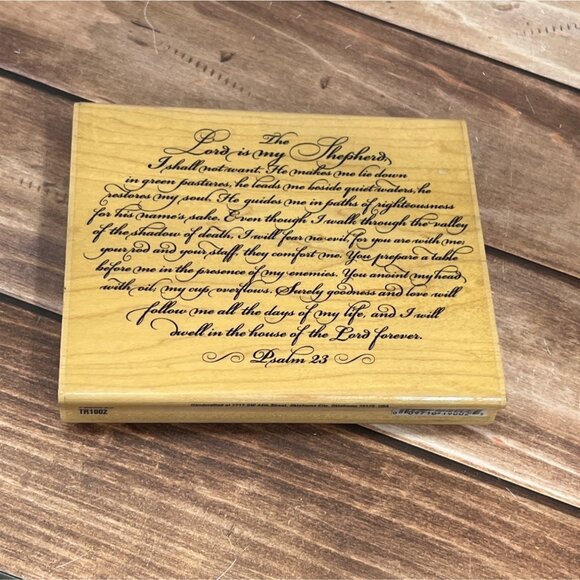 The
Lord is my Shepherd,
I shall not want. He makes me lie down
in green pastures, he leads me beside quiet waters, he
restores my soul. He guides me in paths of righteousness
for his name's sake. Even though I walk through the valley
of the shadow of death, I will fear no evil, for you are with me;
your rod and your staff, they comfort me. You prepare a table
before me in the presence of my enemies. You anoint my head
with oil; my cup overflows. Surely goodness and love will
follow me all the days of my life, and I will
dwell in the house of the Lord forever.
Psalm 23
TR1002